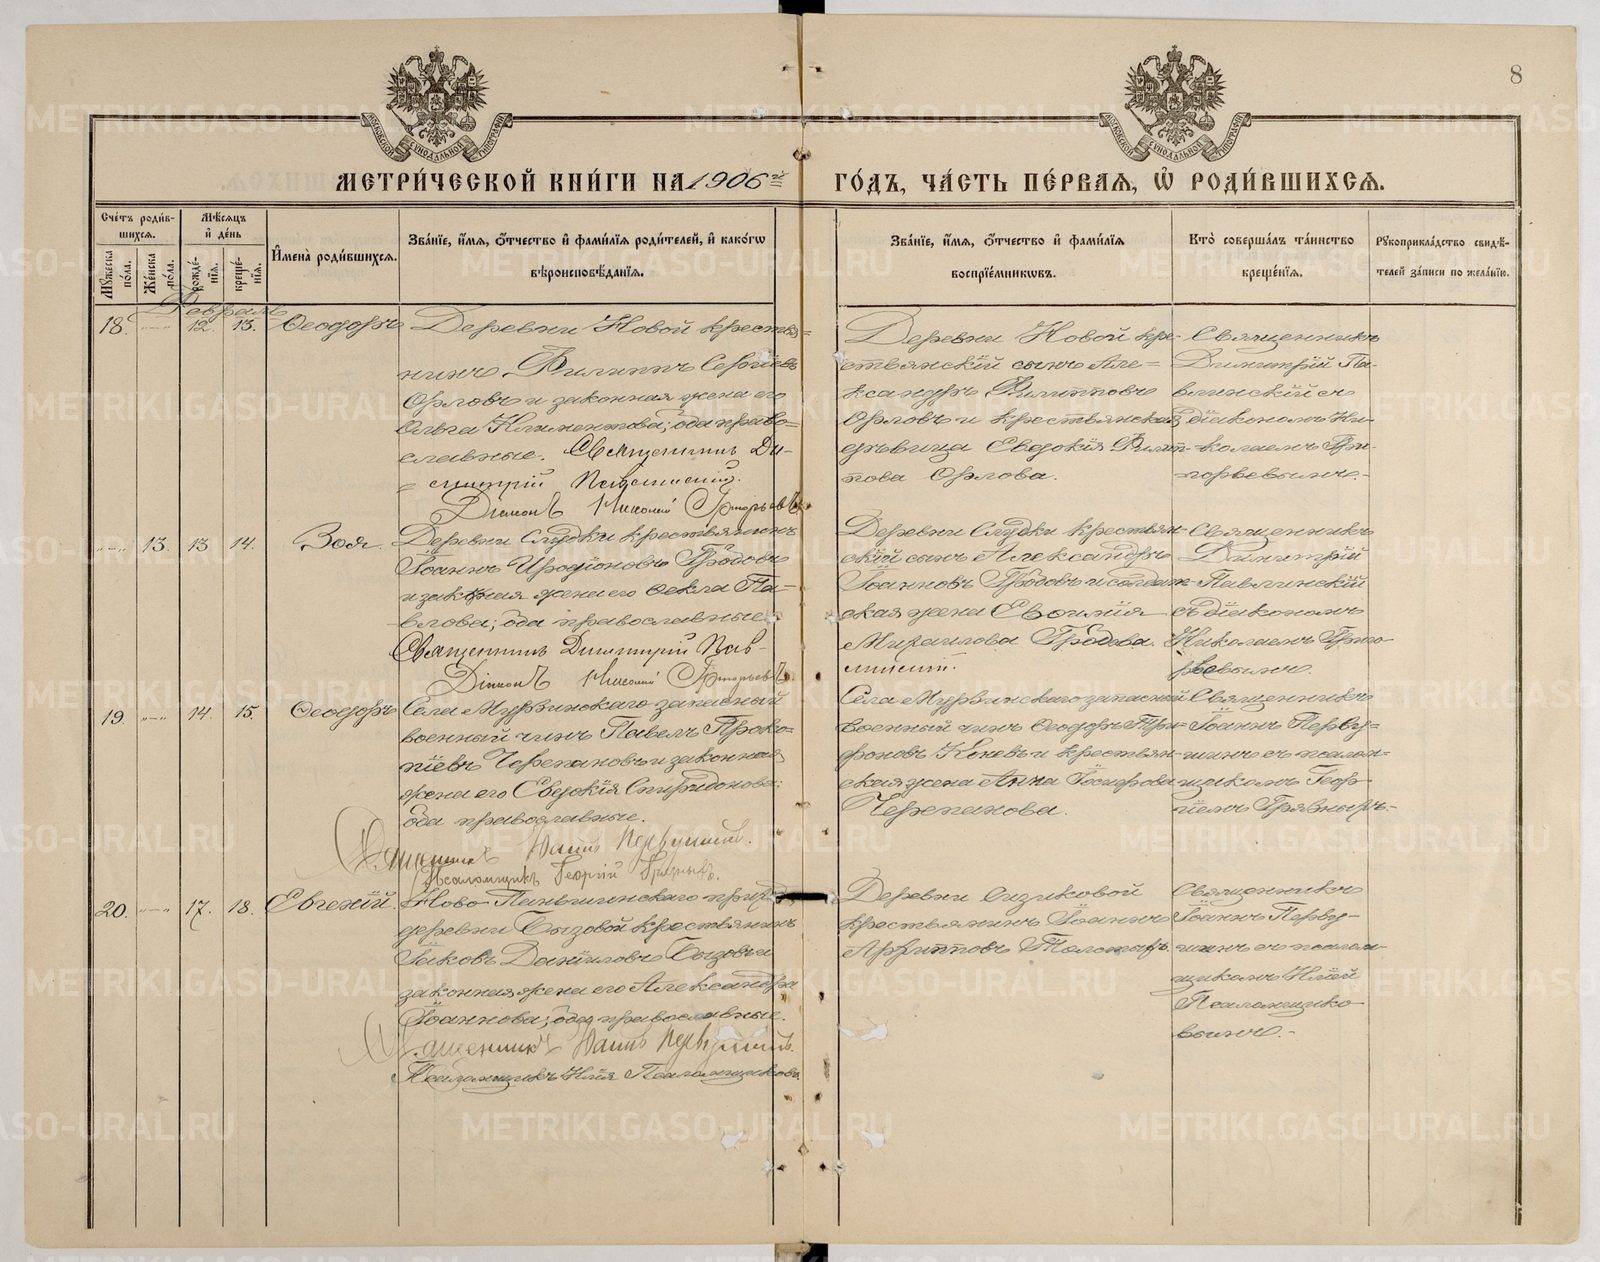 8
МОСКОВСКОЙ СѴНОДАЛЬНОЙ ТИПОГРАФІИ
МОСКОВСКОЙ СѴНОДАЛЬНОЙ ТИПОГРАФІИ
МЕТРИ́ЧЕСКОЙ КНИ́ГИ НА 1906 й ГО́ДЪ, ЧА́СТЬ ПЕ́РВАѦ, Ѡ РОДИ́ВШИХСѦ.
Сче́тъ роди́в-
шихсѧ.
Мꙋ́жеска по́ла.
Же́нска по́ла.
Мѣ́сѧцъ
и҆ де́нь
рожде́-
нїѧ.
креще́-
нїѧ.
И҆мена̀ роди́вшихсѧ.
Зва́нїе, и҆́мѧ, ѻ҆́тчество и҆ фами́лїѧ роди́телей, и҆ како́гѡ
вѣроисповѣ́данїѧ.
Зва́нїе, и҆́мѧ, ѻ҆́тчество и҆ фами́лїѧ
воспрїе́мникѡвъ.
Кто̀ соверша́лъ та́инство
креще́нїѧ.
Рꙋкоприкла́дство свидѣ́-
телей за́писи по жела́нїю.
Февраль
18. -"- 12. 13. Ѳеодоръ
Деревни Новой крестья=
нинъ Филиппъ Сергіевъ
Орловъ и законная жена его
Ольга Климентова; оба право=
славные. Священникъ Ди-
= митрій Павлинскій.
Діаконъ Николай Григорьевъ
Деревни Новой кре-
стьянскій сынъ Але=
ксандръ Филипповъ
Орловъ и крестьянская
дѣвица Евдокія Филип-
пова Орлова.
Священникъ
Димитрій Па-
влинскій съ
діакономъ Ни-
колаемъ Гри-
горьевымъ.
-"- 13. 13 14. Зоя.
Деревни Слудки крестьянинъ
Іоаннъ Иродіоновъ Гробовъ
и законная жена его Ѳекла Па-
влова; оба православные
Священникъ Димитрій Пав-
линскій.
Діаконъ Николай Григорьевъ
Деревни Слудки крестьян-
скій сынъ Александръ
Іоанновъ Гробовъ и солдат-
ская жена
Михаилова Гробова.
Священникъ
Димитрій
Павлинскій
съ діакономъ
Николаемъ Григо
рьевымъ.
19. -"- 14. 15. Ѳеодоръ
Села Мурзинскаго запасный
военный чинъ Павелъ Проко-
піевъ Черепановъ и законная
жена его Евдокія Спиридонова;
оба православные.
Священникъ Іоаннъ Первушинъ.
Псаломщикъ Георгій Грязныхъ.
Села Мурзинскаго запасный
военный чинъ Ѳеодоръ Три-
фоновъ Коневъ и крестьян-
ская жена Анна Іосифова
Черепанова.
Священникъ
Іоаннъ Перву-
шинъ съ псалом-
щикомъ Геор-
гіемъ Грязныхъ.
20. -"- 17. 18. Евгеній.
Ново-Паньшинскаго прихода
деревни Бызовой крестьянинъ
Іаковъ Даніиловъ Бызовъ и
законная жена его Александра
Іоаннова; оба православные.
Священникъ Іоаннъ Первушинъ.
Псаломщикъ Илія Псаломщиковъ
Деревни Сизиковой
крестьянинъ Іоаннъ
Архипповъ Толстыхъ.
Священникъ
Іоаннъ Перву-
шинъ съ псалом-
щикомъ Иліей
Псаломщико
вымъ.